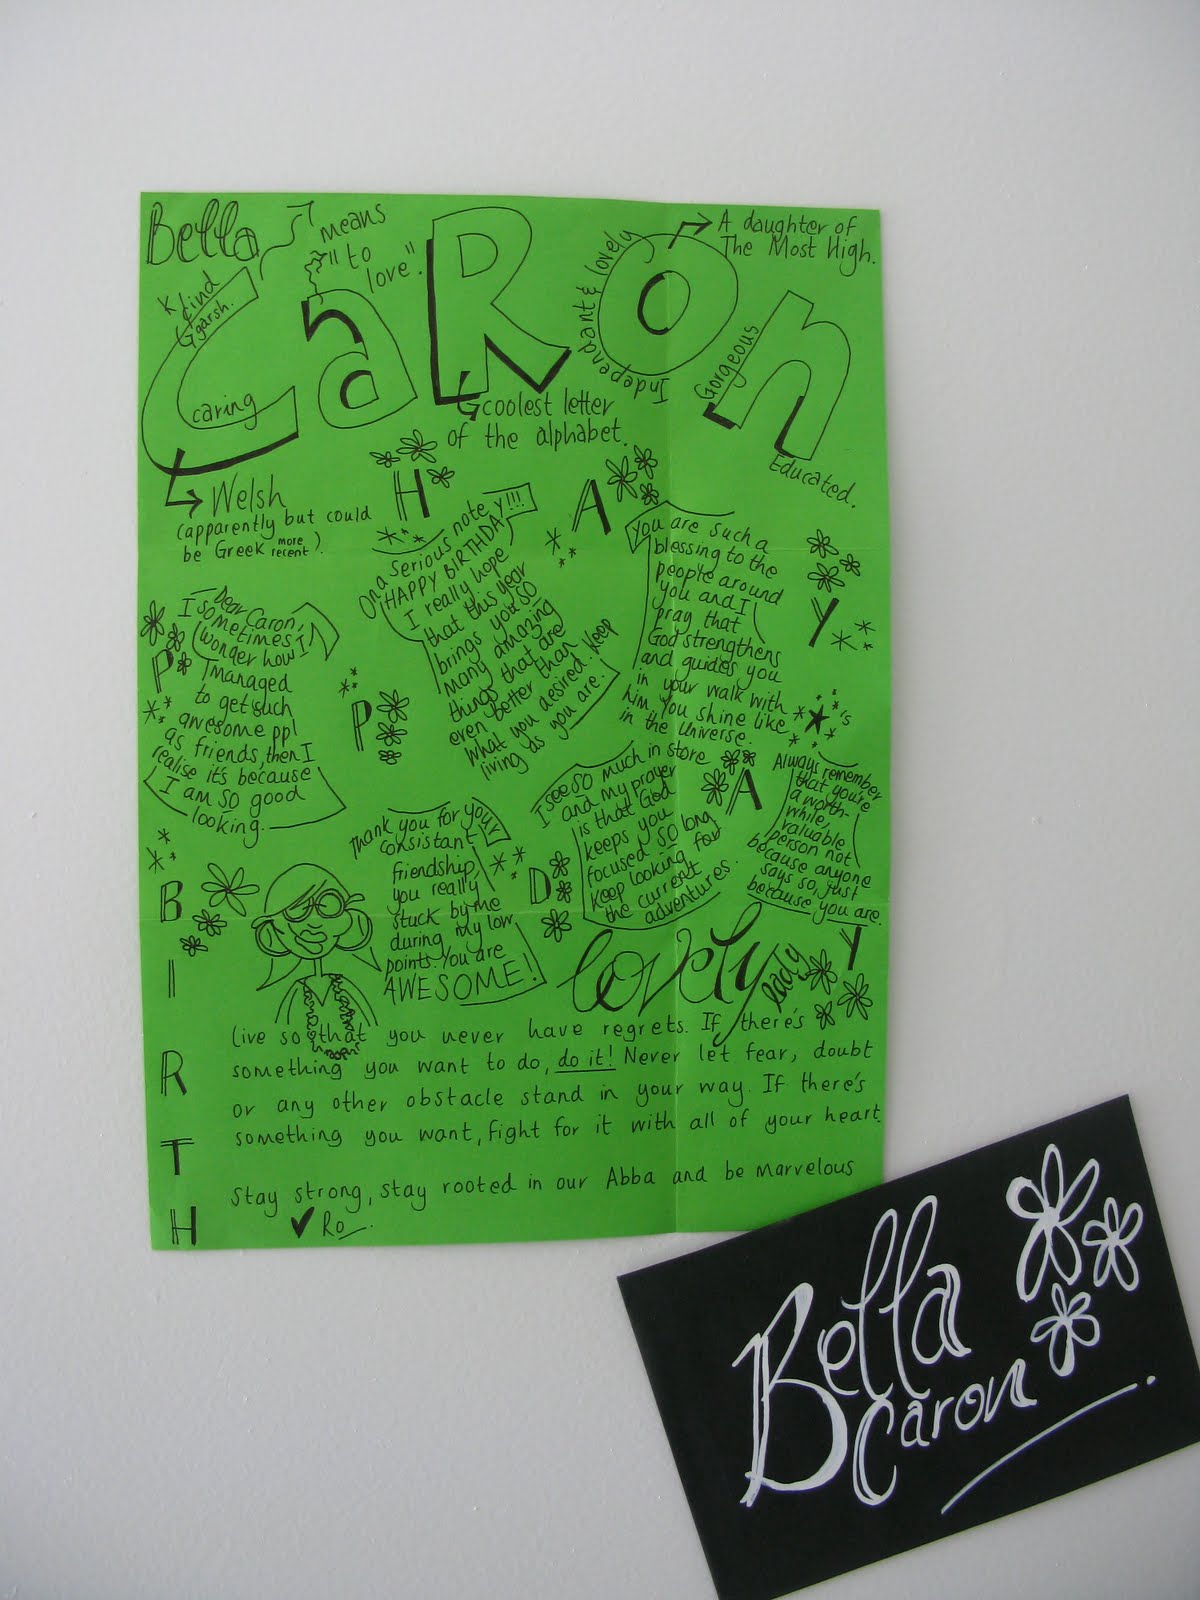 Bella
means
"to
love".
CaRon
A daughter of
The Most High.
Kind
&
Ggarsh.
caring
Independant & lovely
Gorgeous
Educated.
coolest letter
of the alphabet.
Welsh
(apparently but could
be Greek more recent).
HAPPY
BIRTHDAY
Dear Caron,
I sometimes
wonder how I
managed
to get such
awesome ppl
as friends, then I
realise it's because
I am so good
looking.
On a serious note
HAPPY BIRTHDAY!!!!
I really hope
that this year
brings you so
many amazing
things that are
even better than
what you desired. Keep
living as you are.
You are such a
blessing to the
people around
you and I
pray that
God strengthens
and guides you
in your walk with
him. You shine like ★'s
in the universe.
Thank you for your
consistant
friendship,
you really
stuck by me
during my low
points. You are
AWESOME!
I see so much in store
and my prayer
is that God
keeps you
focused. So long
keep looking for
the current
adventures.
Always remember
that you're
a worth-
while,
valuable
person not
because anyone
says so, just
because you are.
lovely lady
Live so that you never have regrets. If there's
something you want to do, do it! Never let fear, doubt
or any other obstacle stand in your way. If there's
something you want, fight for it with all of your heart.
Stay strong, stay rooted in our Abba and be marvelous
Ro
Bella
Caron